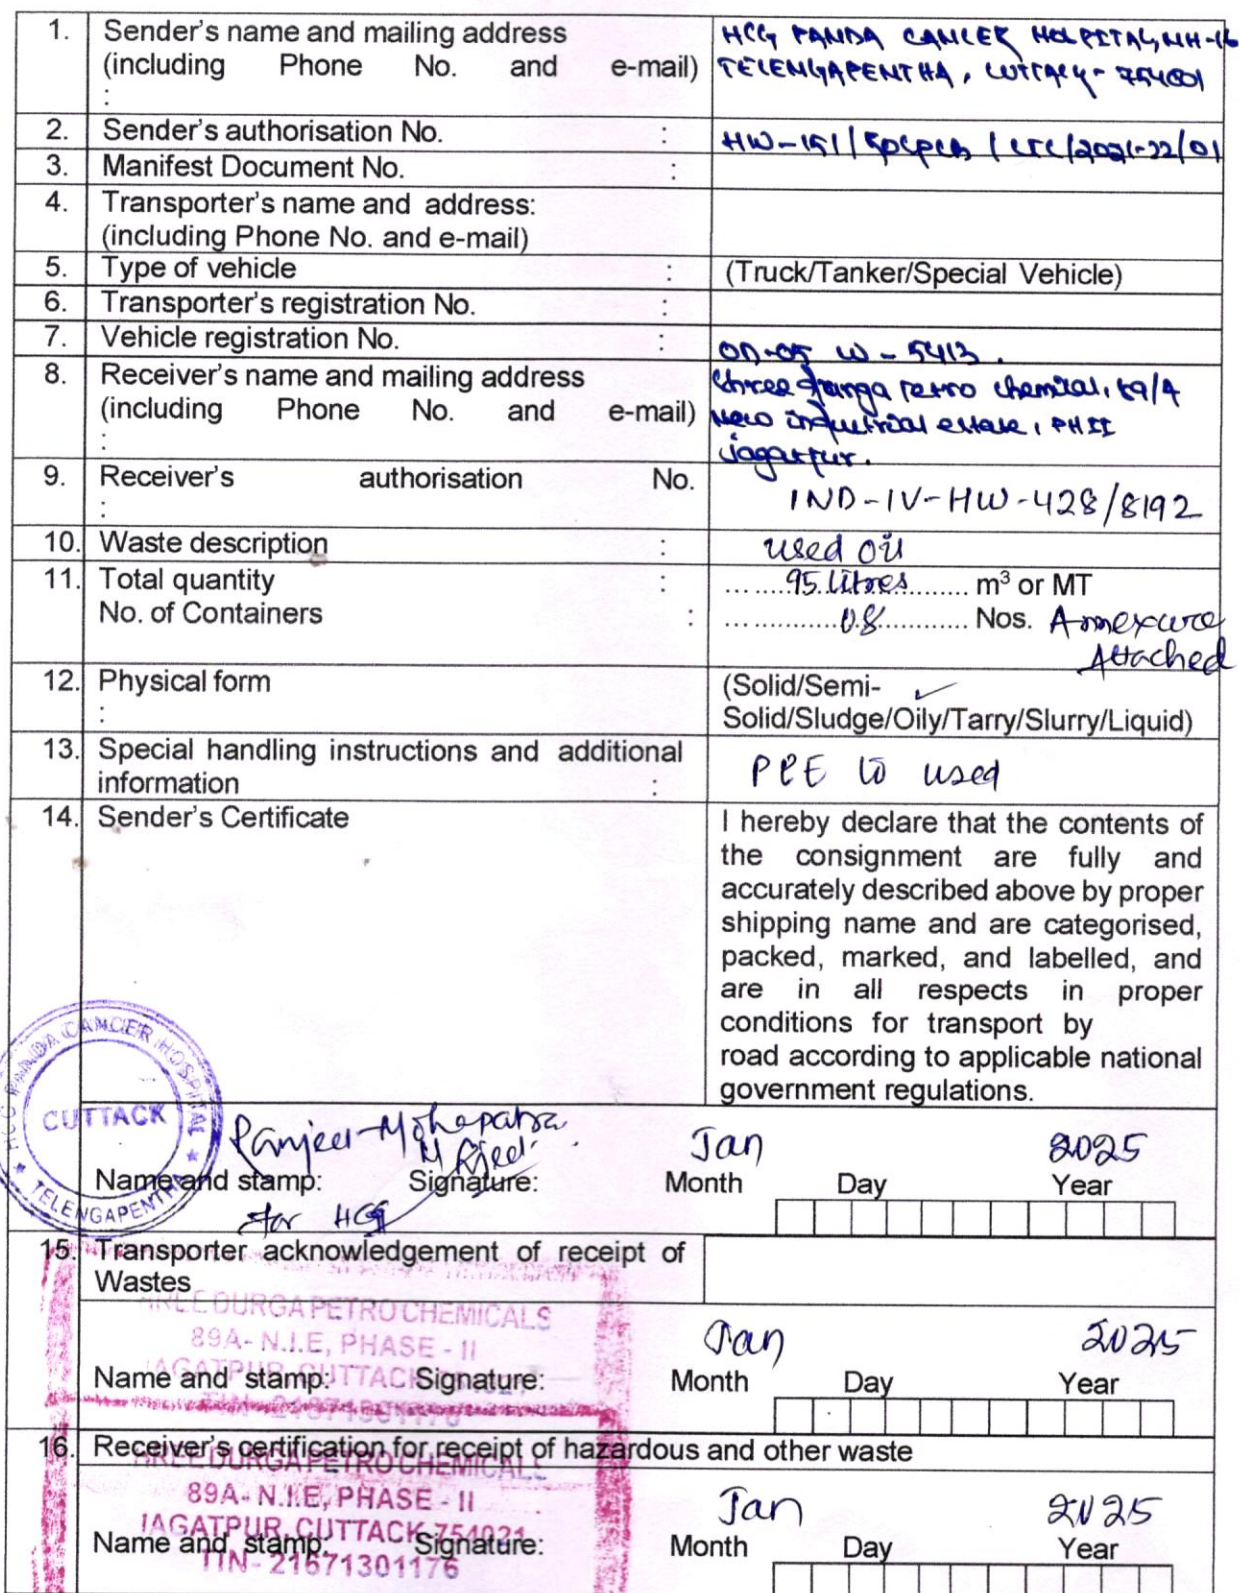 1. Sender's name and mailing address HCG PANDA CANCER HOSPITAL, NH-16
(including Phone No. and e-mail) TELENGAPENTHA, CUTTACK- 754001
:
2. Sender's authorisation No. : HW-151/SPCPCB/CTC/2021-22/01
3. Manifest Document No. :
4. Transporter's name and address:
(including Phone No. and e-mail)
5. Type of vehicle : (Truck/Tanker/Special Vehicle)
6. Transporter's registration No. :
7. Vehicle registration No. : OD-05 W - 5413.
8. Receiver's name and mailing address Shree Durga Petro chemical, 89/A
(including Phone No. and e-mail) New industrial estate, PHII
: Jagatpur.
9. Receiver's authorisation No.
: IND-IV-HW-428/8192
10. Waste description : used oil
11. Total quantity : ........95 Litres........ m³ or MT
No. of Containers : ........08........ Nos. Annexure
Attached
12. Physical form (Solid/Semi-
: Solid/Sludge/Oily/Tarry/Slurry/Liquid)
13. Special handling instructions and additional
information : PPE to used
14. Sender's Certificate I hereby declare that the contents of
the consignment are fully and
accurately described above by proper
shipping name and are categorised,
packed, marked, and labelled, and
are in all respects in proper
conditions for transport by
road according to applicable national
government regulations.
HCG PANDA CANCER HOSPITAL
CUTTACK
TELENGAPENTHA
Mohapatra Jan 2025
Name and stamp: Signature: Month Day Year
for HCG
15. Transporter acknowledgement of receipt of
Wastes
SHREE DURGA PETRO CHEMICALS
89A- N.I.E, PHASE - II Jan 2025
JAGATPUR, CUTTACK-754021
Name and stamp: Signature: Month Day Year
TIN- 21671301176
16. Receiver's certification for receipt of hazardous and other waste
SHREE DURGA PETRO CHEMICALS
89A- N.I.E, PHASE - II Jan 2025
JAGATPUR, CUTTACK-754021
Name and stamp: Signature: Month Day Year
TIN- 21671301176